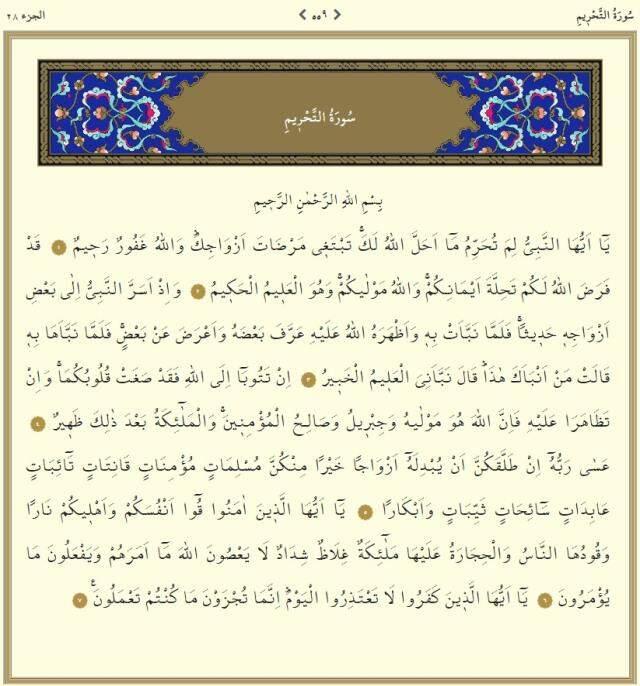 سُورَةُ التَّحْرٖيمِ ٥٥٩ الجزء ٢٨
سُورَةُ التَّحْرٖيمِ
بِسْمِ اللّٰهِ الرَّحْمٰنِ الرَّحٖيمِ
يَٓا اَيُّهَا النَّبِيُّ لِمَ تُحَرِّمُ مَٓا اَحَلَّ اللّٰهُ لَكَۚ تَبْتَغٖي مَرْضَاتَ اَزْوَاجِكَؕ وَاللّٰهُ غَفُورٌ رَحٖيمٌ ١ قَدْ
فَرَضَ اللّٰهُ لَكُمْ تَحِلَّةَ اَيْمَانِكُمْۚ وَاللّٰهُ مَوْلٰيكُمْۚ وَهُوَ الْعَلٖيمُ الْحَكٖيمُ ٢ وَاِذْ اَسَرَّ النَّبِيُّ اِلٰى بَعْضِ
اَزْوَاجِهٖ حَدٖيثاًۚ فَلَمَّا نَبَّاَتْ بِهٖ وَاَظْهَرَهُ اللّٰهُ عَلَيْهِ عَرَّفَ بَعْضَهُ وَاَعْرَضَ عَنْ بَعْضٍۚ فَلَمَّا نَبَّاَهَا بِهٖ
قَالَتْ مَنْ اَنْبَاَكَ هٰذَاؕ قَالَ نَبَّاَنِيَ الْعَلٖيمُ الْخَبٖيرُ ٣ اِنْ تَتُوبَٓا اِلَى اللّٰهِ فَقَدْ صَغَتْ قُلُوبُكُمَاۚ وَاِنْ
تَظَاهَرَا عَلَيْهِ فَاِنَّ اللّٰهَ هُوَ مَوْلٰيهُ وَجِبْرٖيلُ وَصَالِحُ الْمُؤْمِنٖينَۚ وَالْمَلٰٓئِكَةُ بَعْدَ ذٰلِكَ ظَهٖيرٌ ٤
عَسٰى رَبُّهُٓ اِنْ طَلَّقَكُنَّ اَنْ يُبْدِلَهُٓ اَزْوَاجاً خَيْراً مِنْكُنَّ مُسْلِمَاتٍ مُؤْمِنَاتٍ قَانِتَاتٍ تَٓائِبَاتٍ
عَابِدَاتٍ سَٓائِحَاتٍ ثَيِّبَاتٍ وَاَبْكَاراً ٥ يَٓا اَيُّهَا الَّذٖينَ اٰمَنُوا قُٓوا اَنْفُسَكُمْ وَاَهْلٖيكُمْ نَاراً
وَقُودُهَا النَّاسُ وَالْحِجَارَةُ عَلَيْهَا مَلٰٓئِكَةٌ غِلَاظٌ شِدَادٌ لَا يَعْصُونَ اللّٰهَ مَٓا اَمَرَهُمْ وَيَفْعَلُونَ مَا
يُؤْمَرُونَ ٦ يَٓا اَيُّهَا الَّذٖينَ كَفَرُوا لَا تَعْتَذِرُوا الْيَوْمَؕ اِنَّمَا تُجْزَوْنَ مَا كُنْتُمْ تَعْمَلُونَۚ ٧